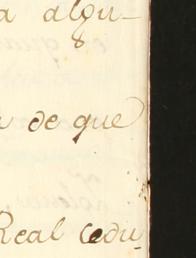 a algu-
a de que
Real cedu